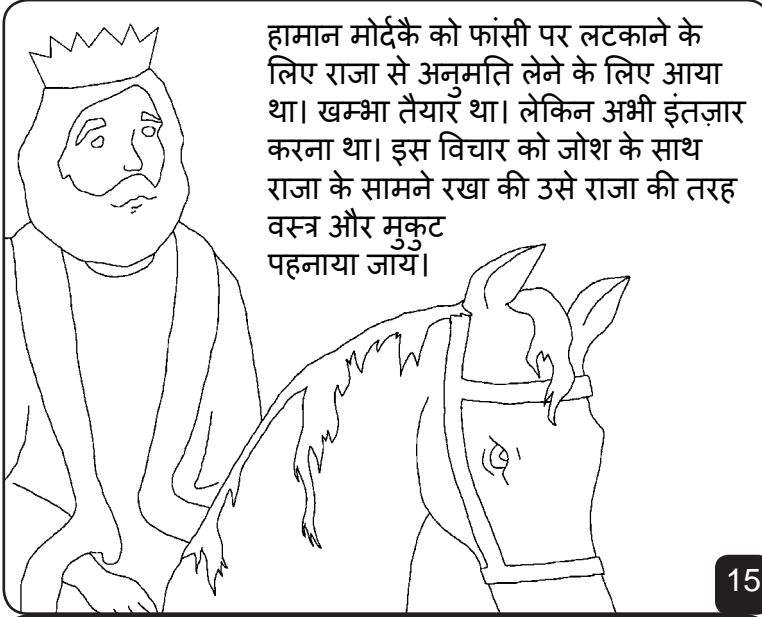 हामान मोर्दकै को फांसी पर लटकाने के
लिए राजा से अनुमति लेने के लिए आया
था। खम्भा तैयार था। लेकिन अभी इंतज़ार
करना था। इस विचार को जोश के साथ
राजा के सामने रखा की उसे राजा की तरह
वस्त्र और मुकुट
पहनाया जाय।
15